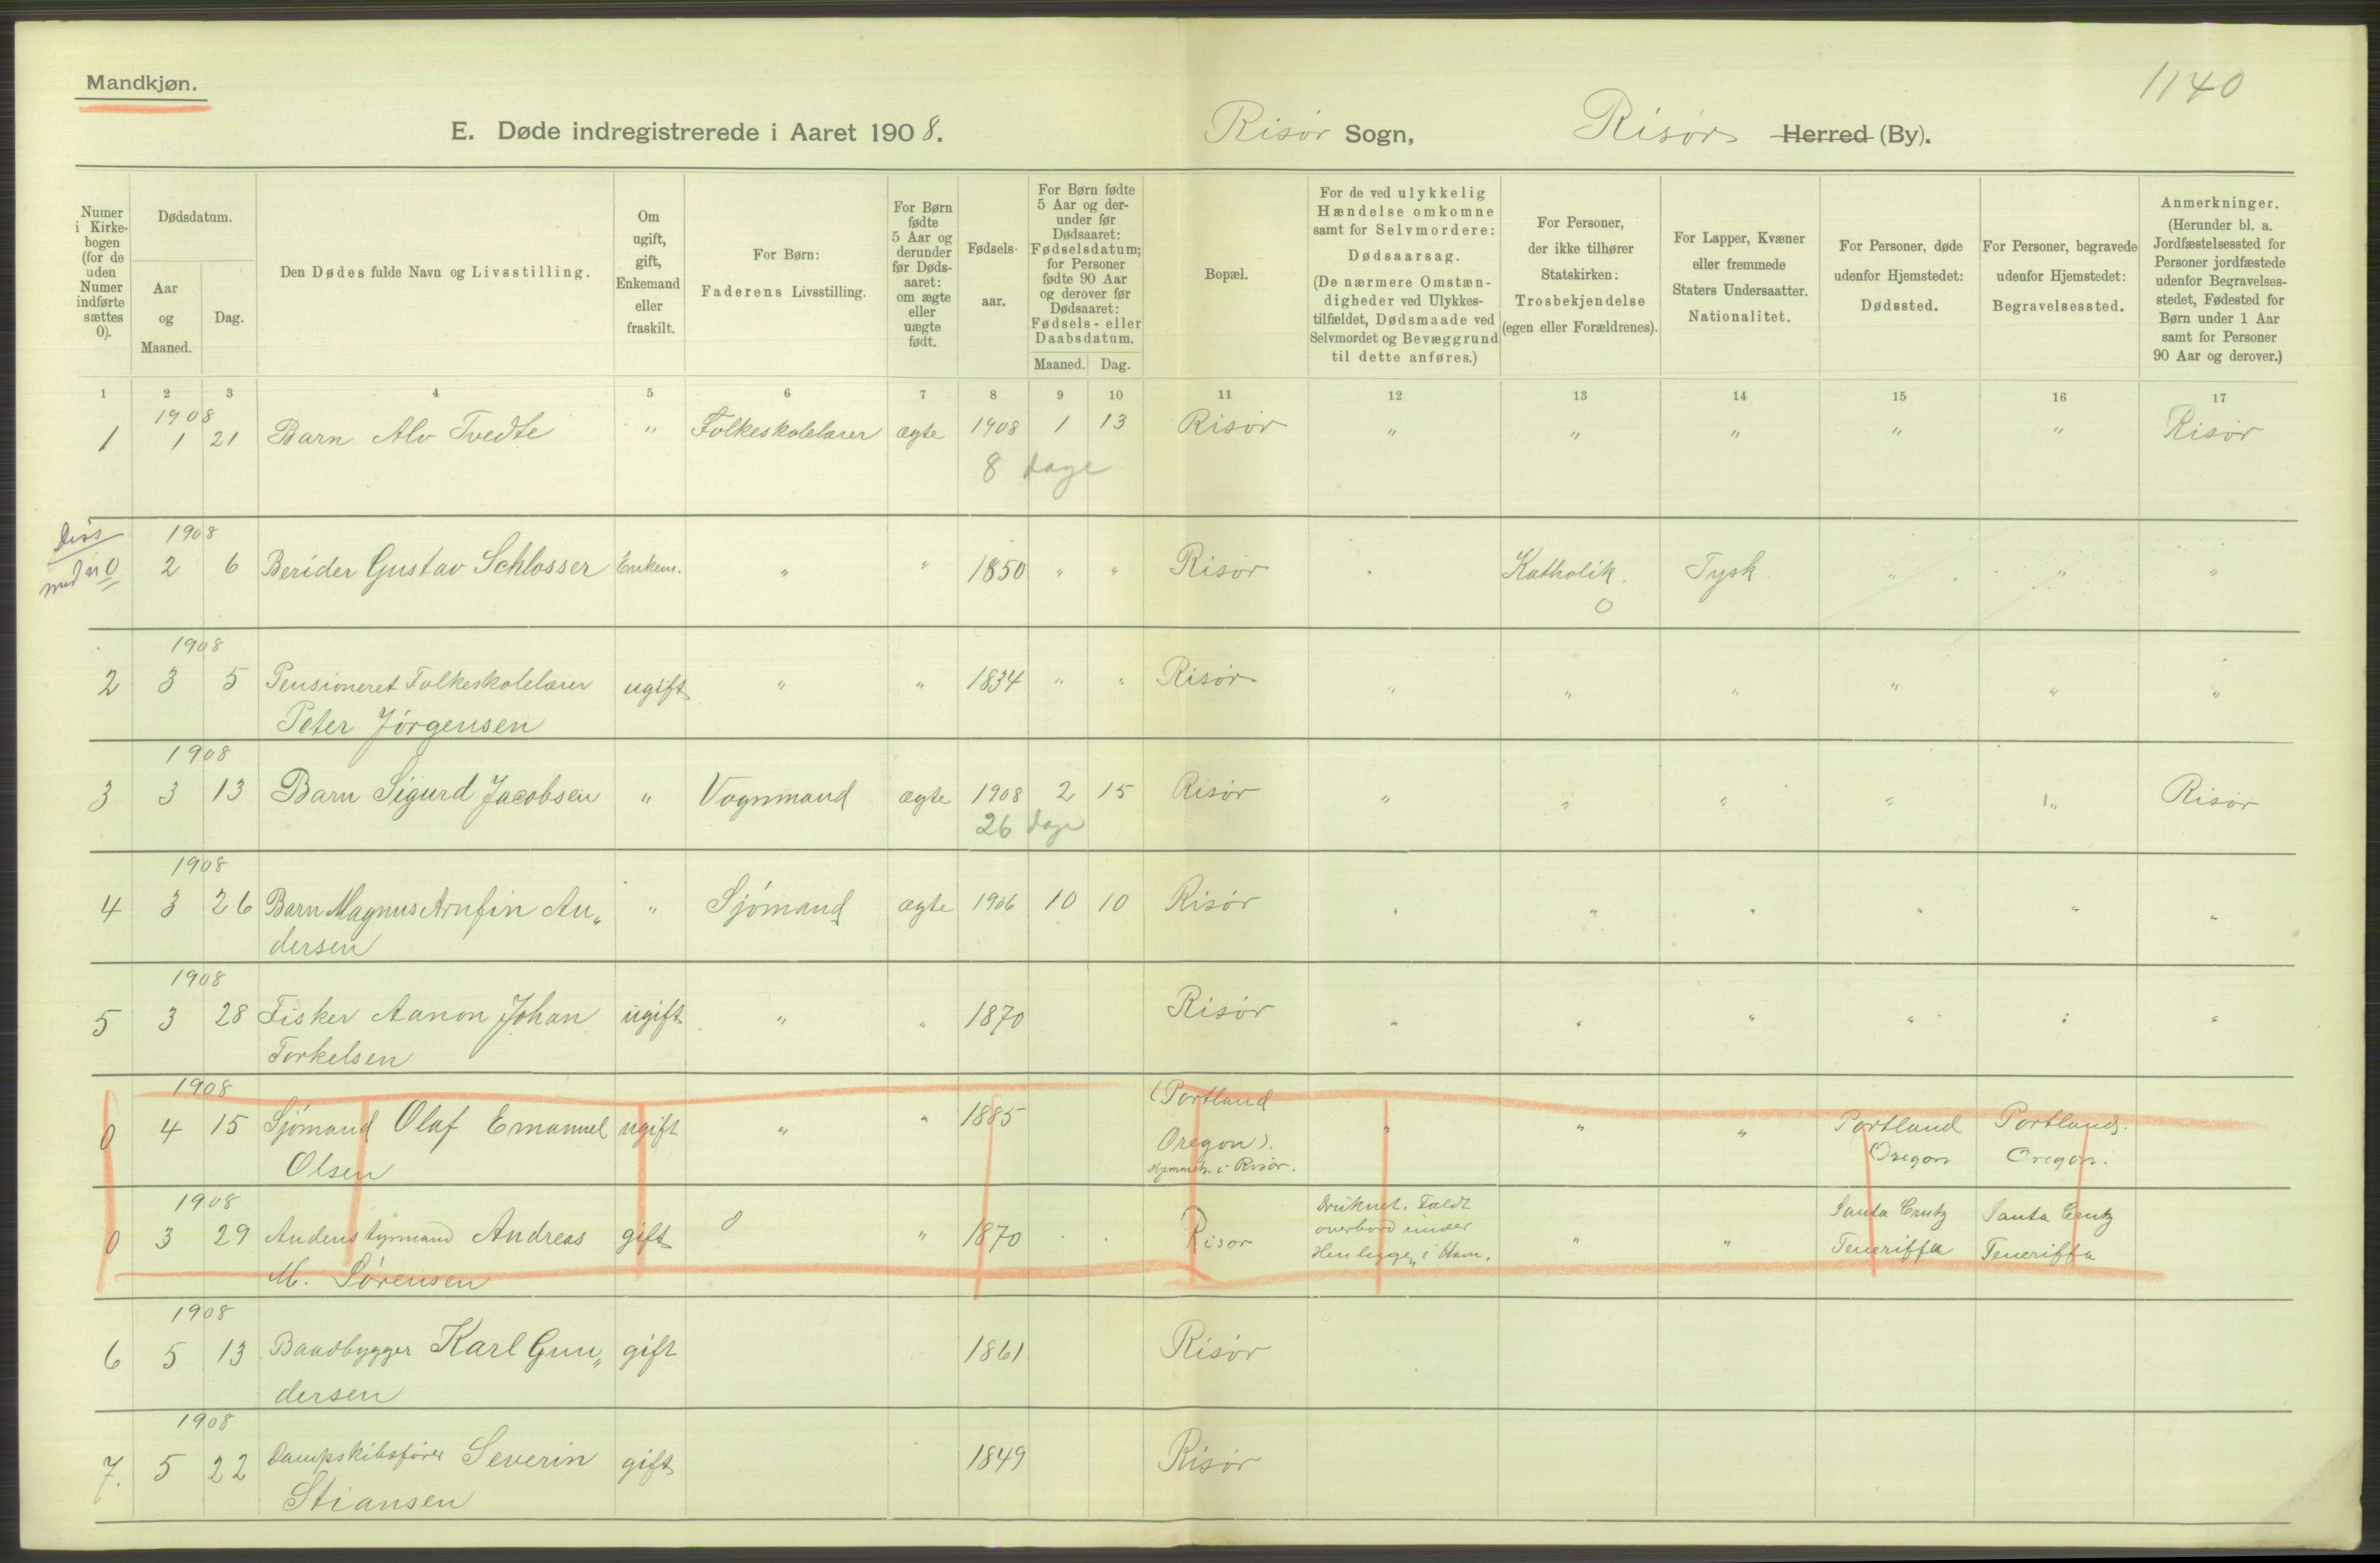 Mandkjøn.
1140
E. Døde indregistrerede i Aaret 1908. Risør Sogn, Risør Herred (By).
Numer i Kirkebogen (for de uden Numer indførte sættes 0).
Dødsdatum.
Aar og Maaned.
Dag.
Den Dødes fulde Navn og Livsstilling.
Om ugift, gift, Enkemand eller fraskilt.
For Børn: Faderens Livsstilling.
For Børn fødte 5 Aar og derunder før Dødsaaret: om ægte eller uægte født.
Fødselsaar.
For Børn fødte 5 Aar og derunder før Dødsaaret: Fødselsdatum; for Personer fødte 90 Aar og derover før Dødsaaret: Fødsels- eller Daabsdatum.
Maaned. Dag.
Bopæl.
For de ved ulykkelig Hændelse omkomne samt for Selvmordere: Dødsaarsag. (De nærmere Omstændigheder ved Ulykkestilfældet, Dødsmaade ved Selvmordet og Bevæggrund til dette anføres.)
For Personer, der ikke tilhører Statskirken: Trosbekjendelse (egen eller Forældrenes).
For Lapper, Kvæner eller fremmede Staters Undersaatter. Nationalitet.
For Personer, døde udenfor Hjemstedet: Dødssted.
For Personer, begravede udenfor Hjemstedet: Begravelsessted.
Anmerkninger. (Herunder bl. a. Jordfæstelsessted for Personer jordfæstede udenfor Begravelsesstedet, Fødested for Børn under 1 Aar samt for Personer 90 Aar og derover.)
1 2 3 4 5 6 7 8 9 10 11 12 13 14 15 16 17
1908
1 1 21 Barn Alv Tvedte " Folkeskolelærer ægte 1908 1 13 Risør " " " " " Risør
8 dage
Diss
1908
med n 0 2 6 Berider Gustav Schlosser Enkem. " " 1850 " " Risør " Katholik. Tysk " " "
0
1908
2 3 5 Pensioneret Folkeskolelærer ugift " " 1834 " " Risør " " " " " "
Peter Jørgensen
1908
3 3 13 Barn Sigurd Jacobsen " Vognmand ægte 1908 2 15 Risør " " " " " Risør
26 dage
1908
4 3 26 Barn Magnus Arnfin An„ " Sjømand ægte 1906 10 10 Risør " " " " " "
dersen
1908
5 3 28 Fisker Aanon Johan ugift " " 1870 Risør " " " " " "
Torkelsen
1908
0 4 15 Sjømand Olaf Emanuel ugift " " 1885 (Portland Oregon). Hjemmeh. i Risør. " " " Portland Oregon Portland. Oregon.
Olsen
1908
0 3 29 Andenstyrmand Andreas gift 0 " 1870 Risør Druknet. Faldt overbord under Henligge„ i Havn. " " Santa Crutz Teneriffa Santa Crutz Teneriffa
M. Sørensen
1908
6 5 13 Baadbygger Karl Gun„ gift 1861 Risør
dersen
1908
7. 5 22 Dampskibsfører Severin gift 1849 Risør
Stiansen